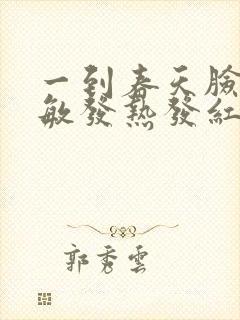 一到春天臉
敏發熱發紅
郭秀雲